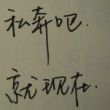 私奔吧.
就现在.